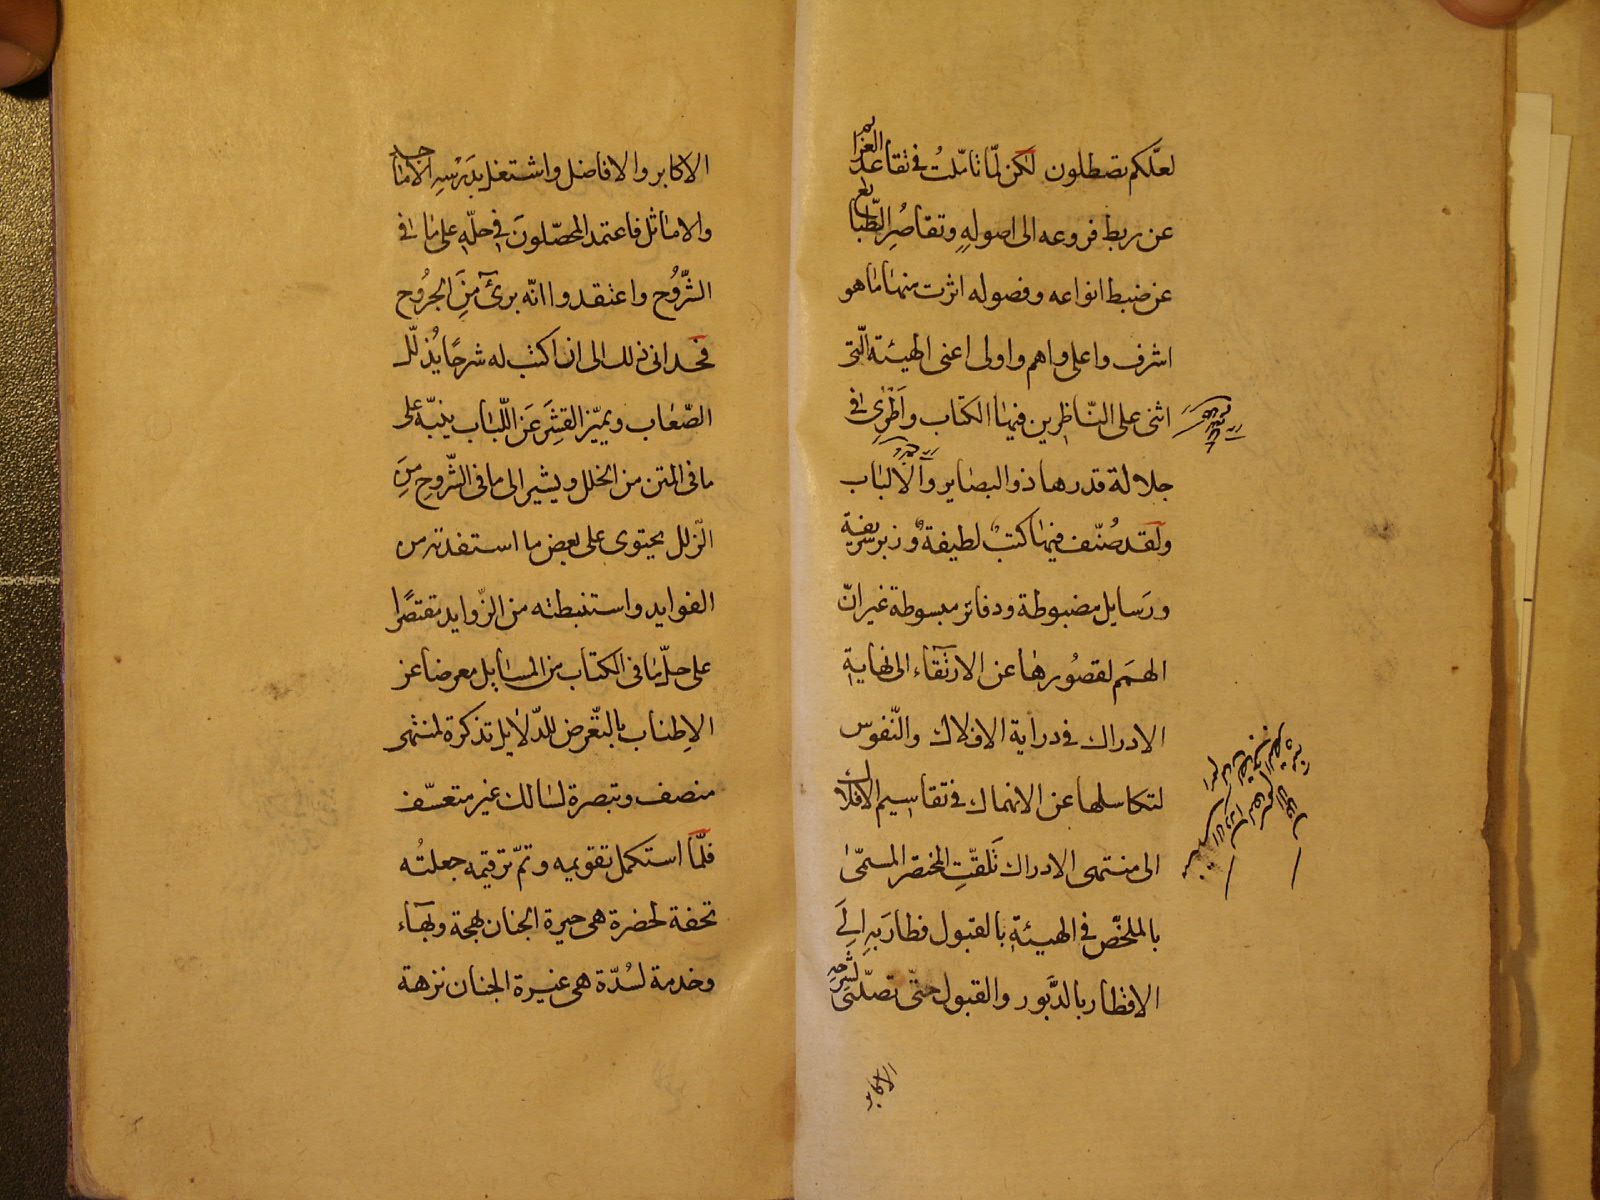 لعلّكم تصطلون لكن لمّا تأمّلتُ في تقاعد العزايم
عن ربط فروعه الى اصوله وتقاصُر الطّبايع
عن ضبط انواعه وفصوله اثرت منها ما هو
اشرف واعلى واهم واولى اعنى الهيئة الّتى
اثنى على النّاظرين فيها الكتاب واَطرى فى
جلالة قدرها ذو البصاير والالباب
ولقد صُنّف فيها كتبٌ لطيفة وزبر شريفة
ورسايل مضبوطة ودفاتر مبسوطة غير انّ
الهمَم لقصُورها عن الارتقاء الى نهاية
الادراك فى دراية الافلاك والنّفوس
لتكاسلها عن الانهماك فى تقاسيم الافلاك
الى منتهى الادراك تَلقّتِ المختصر المسمّى
بالملخّص فى الهيئة بالقبول فطارَ به اِلَى
الاقطار بالدَّبور والقبول حتّى تصدّى لشرحه
الاكابر
الاكابر والافاضل واشتغل بدَرْسِه الاماجد
والاماثل فاعتمد المحصّلونَ فى حلّه على ما فى
الشُّروح واعتقدوا انّه برئ مِنَ الجرُوح
فحدانى ذلك الى ان اكتب له شرحًا يُذلّل
الصّعاب ويميّز القشرَ عَن اللّباب ينبّه على
ما فى المتن من الخلل ويشير الى ما فى الشّروح مِنَ
الزّلل يحتوى على بعض ما استفدته من
الفوايد واستنبطته من الزّوايد مقتصرًا
على حلّ ما فى الكتاب من المسايل معرضا عن
الاِطناب بالتّعرض للدّلايل تذكرة لمنتهٍ
منصف وتبصرة لسالك غير متعسّف
فلمّا استكمل تقويمه وتمّ ترقيمه جعلتُه
تحفة لحضرة هى حيرة الجنان بهجة وبهآء
وخدمة لسُدّة هى عنيرة الجنان نزهة